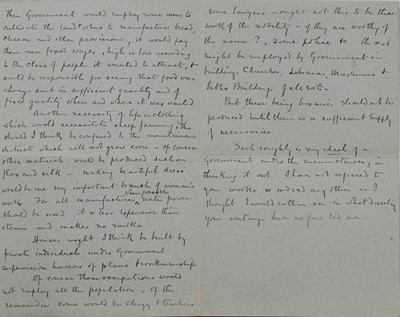 then Government would employ some men to
cultivate the land & others to manufacture bread,
cheese and other provisions, it would pay
them new fixed wages, high or low according
to the class of people it wanted to attract, &
would be responsible for seeing that food was
always sent in sufficient quantity and of
fixed quality when and where it was wanted
Another necessity of life is clothing
which would necessitate sheep farming, this
should I think be confined to the mountainous
districts which will not grow corn – of course
other materials would be produced such as
flax and silk – making beautiful dress
would be one very important branch of woman's
work. For all manufactures, when possible, water power
should be used it is less expensive than
steam and makes no smoke
Houses might I think be built by
private individuals under Government
supervision however of plans & workmanship
Of course these occupations would
not employ all the population – of the
remainder some would be clergy & teachers
some lawyers – ought not this to be the
work of the nobility – if they are worthy of
the name?, some police &c the rest
might be employed by Government in
building Churches, Libraries, Museums &
Public Buildings of all sorts.
But these being luxuries should not be
produced until there is a sufficient supply
of necessaries.
Such roughly is my ideal of a
Government under the circumstances; in
thinking it out I have not referred to
your works or indeed any other as I
thought I would rather see in what direction
your writings have so far led me